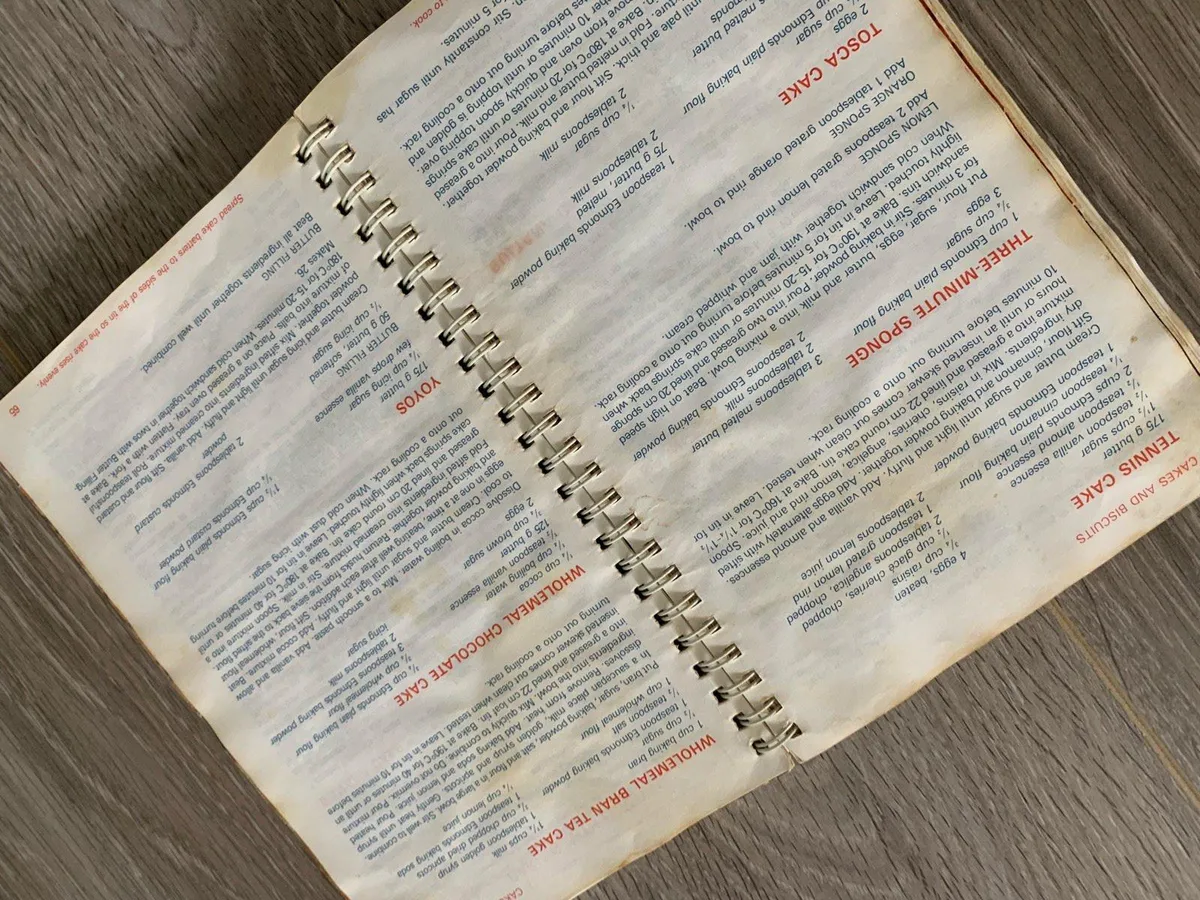 CAKES AND BISCUITS
TENNIS CAKE
175 g butter
1½ cups sugar
½ teaspoon vanilla essence
½ teaspoon almond essence
2 cups Edmonds plain baking flour
1 teaspoon cinnamon
1 teaspoon Edmonds baking powder
4 eggs, beaten
¾ cup raisins
½ cup glacé cherries, chopped
2 tablespoons angelica, chopped
1 teaspoon grated lemon rind
2 tablespoons lemon juice
Cream butter and sugar until light and fluffy. Add vanilla and almond essences.
Sift flour, cinnamon and baking powder together. Add eggs alternately with sifted
dry ingredients. Mix in raisins, cherries, angelica, rind and juice. Spoon
mixture into a greased and lined 22 cm round cake tin. Bake at 160°C for 1¼-1½
hours or until an inserted skewer comes out clean when tested. Leave in tin for
10 minutes before turning out onto a cooling rack.
THREE-MINUTE SPONGE
1 cup Edmonds plain baking flour
¾ cup sugar
3 eggs
3 tablespoons melted butter
2 tablespoons milk
2 teaspoons Edmonds baking powder
Put flour, sugar, eggs, butter and milk into a mixing bowl. Beat on high speed
for 3 minutes. Stir in baking powder. Pour into two greased and lined 20 cm
sandwich tins. Bake at 190°C for 15-20 minutes or until cake springs back when
lightly touched. Leave in tin for 5 minutes before turning out onto a cooling rack.
When cold sandwich together with jam and whipped cream.
LEMON SPONGE
Add 2 teaspoons grated lemon rind to bowl.
ORANGE SPONGE
Add 1 tablespoon grated orange rind to bowl.
TOSCA CAKE
2 eggs
cup sugar
cup Edmonds plain baking flour
melted butter
1 teaspoon Edmonds baking powder
75 g butter, melted
2 tablespoons milk
¼ cup sugar
2 tablespoons milk
until pale and thick. Sift flour and baking powder together
Fold in melted butter and milk. Pour into a greased
Bake at 180°C for 20 minutes or until cake springs
from oven and quickly spoon topping over.
10 minutes or until topping is golden and
before turning out onto a cooling rack.
Stir constantly until sugar has
for 5 minutes.
to cook.
WHOLEMEAL BRAN TEA CAKE
1 cup baking bran
¾ cup sugar
1 teaspoon Edmonds baking powder
¼ teaspoon salt
1 cup wholemeal flour
1¼ cups milk
1 tablespoon golden syrup
¼ cup chopped dried apricots
1 teaspoon Edmonds baking soda
¼ cup lemon juice
Put bran, sugar, baking powder, salt and flour in a large bowl. Stir well to combine.
In a saucepan place milk, golden syrup and apricots. Gently heat until syrup
dissolves. Remove from heat. Add baking soda and lemon juice. Pour heated
ingredients into the bowl. Mix quickly to combine. Do not overmix. Pour mixture
into a greased and lined 22 cm loaf tin. Bake at 190°C for 40 minutes or until an
inserted skewer comes out clean when tested. Leave in tin for 10 minutes before
turning out onto a cooling rack.
WHOLEMEAL CHOCOLATE CAKE
¼ cup cocoa
¼ cup boiling water
125 g butter
1 cup brown sugar
2 eggs
1 teaspoon vanilla essence
Edmonds plain baking flour
cup wholemeal flour
teaspoons Edmonds baking powder
2 tablespoons milk
icing sugar
Dissolve cocoa in boiling water. Mix to a smooth paste. Add vanilla and allow
to cool. Cream butter and sugar until light and fluffy. Add cocoa mixture. Beat
in eggs one at a time, beating well after each addition. Sift flour, wholemeal flour
and baking powder together. Return husks from the sieve back to the sifted flour.
Fold sifted ingredients into creamed mixture. Stir in milk. Spoon mixture into a
greased and lined 20 cm round cake tin. Bake at 180°C for 40 minutes or until
cake springs back when lightly touched. Leave in tin for 10 minutes before turning
out onto a cooling rack. When cold dust with icing sugar.
YOYOS
175 g butter
¾ cup icing sugar
few drops vanilla essence
1½ cups Edmonds plain baking flour
¼ cup Edmonds custard powder
BUTTER FILLING
50 g butter, softened
½ cup icing sugar
2 tablespoons Edmonds custard
powder
Cream butter and icing sugar until light and fluffy. Add vanilla. Sift flour and custard
powder together. Mix sifted ingredients into creamed mixture. Roll teaspoonsful
of mixture into balls. Place on greased oven tray. Flatten with a fork. Bake at
180°C for 15-20 minutes. When cold sandwich together in twos with Butter Filling.
Makes 26.
BUTTER FILLING
Beat all ingredients together until well combined.
Spread cake batters to the sides of the tin so the cake rises evenly.
65